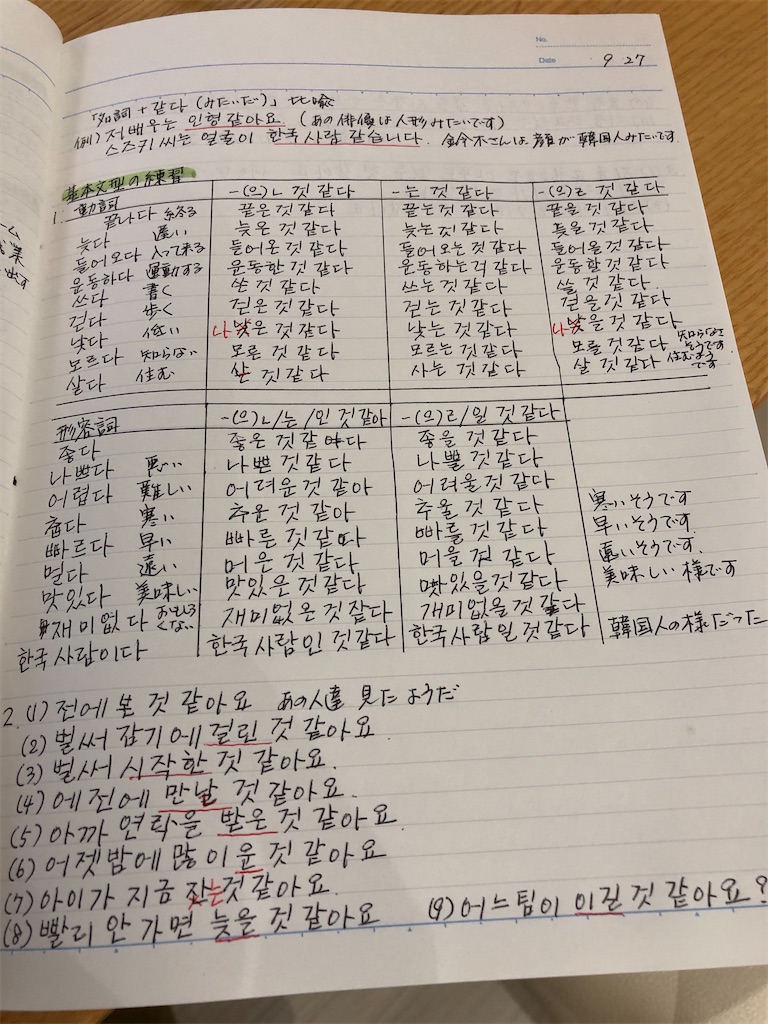 No.
Date 9 27
「名詞 + 같다 (みたいだ)」比喩
例) 정배우는 인형 같아요. (あの俳優は人形みたいです)
스즈키 씨는 얼굴이 한국 사람 같습니다. 鈴木さんは顔が韓国人みたいです.
基本文型の練習
1. 動詞 -(으)ㄴ 것 같다 -는 것 같다 -(으)ㄹ 것 같다
끝나다 終る 끝은 것 같다 끝는 것 같다 끝을 것 같다
늦다 遠い 늦은 것 같다 늦는 것 같다 늦을 것 같다
들어오다 入って来る 들어온 것 같다 들어오는 것 같다 들어올 것 같다
운동하다 運動する 운동한 것 같다 운동하는 것 같다 운동할 것 같다
쓰다 書く 쓴 것 같다 쓰는 것 같다 쓸 것 같다
걷다 歩く 걷은 것 같다 걷는 것 같다 걷을 것 같다
낮다 低い 나 낮은 것 같다 낮는 것 같다 나 낮을 것 같다
모르다 知らない 모른 것 같다 모르는 것 같다 모를 것 같다 知らなさそうです
살다 住む 산 것 같다 사는 것 같다 살 것 같다 住むそうです
形容詞 -(으)ㄴ/는/인 것 같아 -(으)ㄹ/일 것 같다
좋다 좋은 것 같다 좋을 것 같다
나쁘다 悪い 나쁜 것 같다 나쁠 것 같다
어렵다 難しい 어려운 것 같아 어려울 것 같다
춥다 寒い 추운 것 같아 추울 것 같다 寒いそうです
빠르다 早い 빠른 것 같다 빠를 것 같다 早いそうです
멀다 遠い 머은 것 같다 머을 것 같다 遠いそうです.
맛있다 美味しい 맛있은 것 같다 맛있을 것 같다 美味しい様です
재미없다 おもしろくない 재미없은 것 같다 재미없을 것 같다
한국 사람이다 한국 사람인 것 같다 한국 사람일 것 같다 韓国人の様だった
2. (1) 전에 본 것 같아요 あの人達 見たようだ
(2) 벌써 감기에 걸린 것 같아요.
(3) 벌써 시작한 것 같아요.
(4) 예전에 만날 것 같아요.
(5) 아까 연락을 받은 것 같아요.
(6) 어젯밤에 많이 운 것 같아요
(7) 아이가 지금 자는 것 같아요.
(8) 빨리 안 가면 늦을 것 같아요
(9) 어느 팀이 이긴 것 같아요?